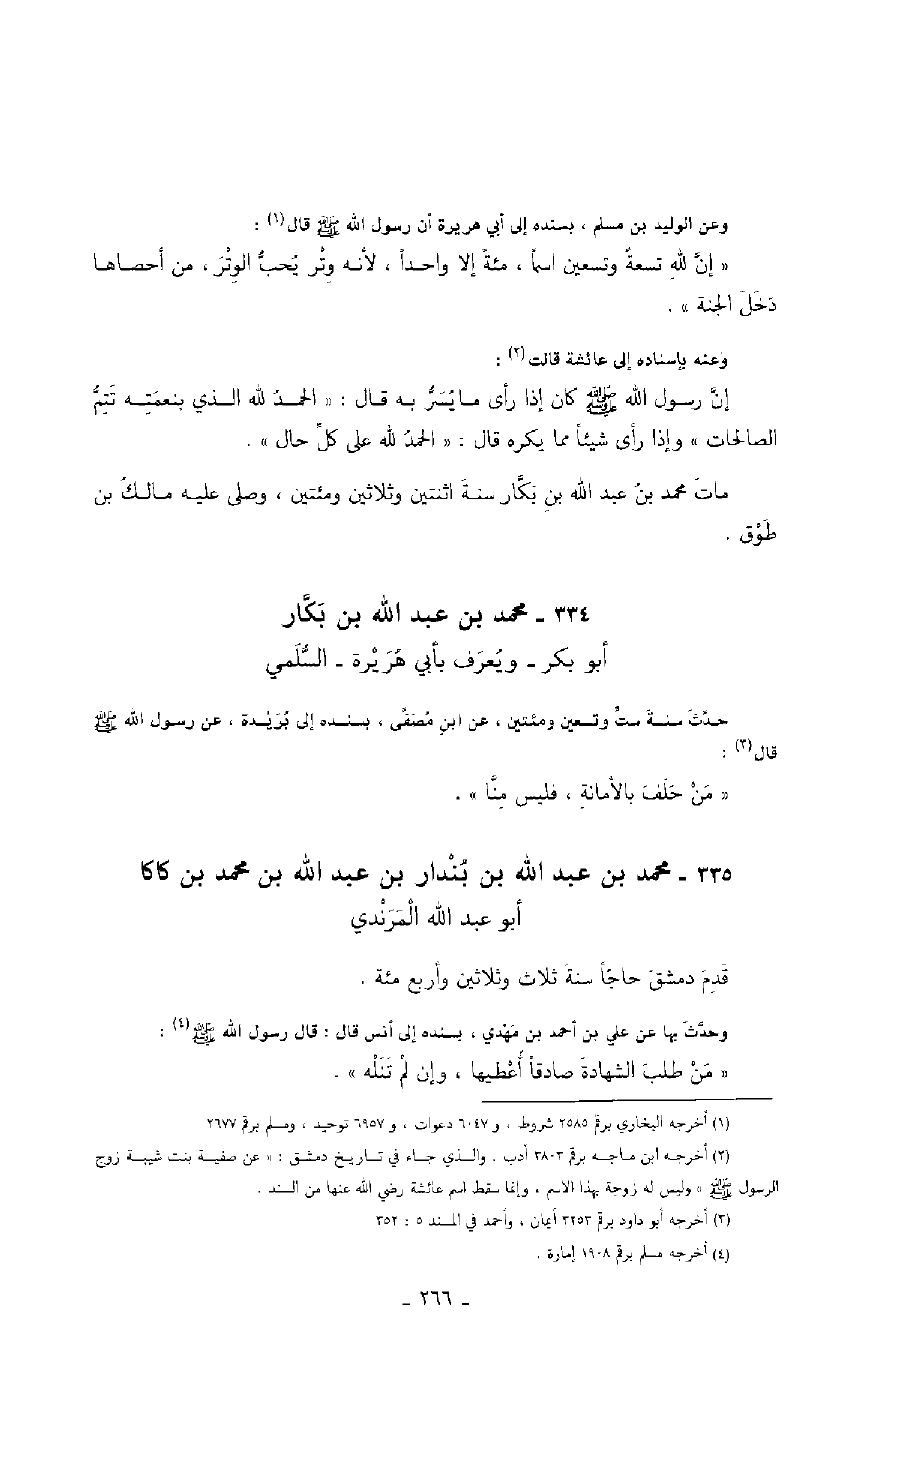 وعن الوليد بن مسلم ، بسنده إلى أبي هريرة أن رسول الله ﷺ قال(١) :
« إنَّ للهِ تسعةً وتسعين اسماً ، مئةً إلا واحداً ، لأنه وِتْر يُحبُّ الوِتْرَ ، من أحصاها
دَخَلَ الجنة » .
وعنه بإسناده إلى عائشة قالت(٢) :
إنَّ رسول الله ﷺ كان إذا رأى ما يُسَرُّ به قال : « الحمدُ لله الذي بنعمَتِه تَتِمُّ
الصالحات » وإذا رأى شيئاً مما يكره قال : « الحمدُ لله على كلِّ حال » .
ماتَ محمد بنُ عبد الله بنِ بَكَّار سنةَ اثنتين وثلاثين ومئتين ، وصلى عليه مالكُ بن
طَوْق .
٣٣٤ ـ محمد بن عبد الله بن بَكَّار
أبو بكر ـ ويُعرَف بأبي هُرَيْرة ـ السُّلَمي
حدَّثَ سنةَ ستٍّ وتسعين ومئتين ، عن ابنِ مُصَفَّى ، بسنده إلى بُرَيْدة ، عن رسول الله ﷺ
قال(٣) :
« مَنْ حَلَفَ بالأمانةِ ، فليس مِنَّا » .
٣٣٥ ـ محمد بن عبد الله بن بُنْدار بن عبد الله بن محمد بن كاكا
أبو عبد الله الْمَرَنْدي
قَدِمَ دمشقَ حاجّاً سنةَ ثلاث وثلاثين وأربع مئة .
وحدَّثَ بها عن علي بن أحمد بن مَهْدي ، بسنده إلى أنس قال : قال رسول الله ﷺ(٤) :
« مَنْ طلبَ الشهادةَ صادقاً أُعْطِيها ، وإن لَمْ تَنَلْه » .
(١) أخرجه البخاري برقم ٢٥٨٥ شروط ، و ٦٠٤٧ دعوات ، و ٦٩٥٧ توحيد ، ومسلم برقم ٢٦٧٧
(٢) أخرجه ابن ماجه برقم ٣٨٠٣ أدب . والذي جاء في تاريخ دمشق : « عن صفية بنت شيبة زوج
الرسول ﷺ » وليس له زوجة بهذا الاسم ، وإنما سقط اسم عائشة رضي الله عنها من السند .
(٣) أخرجه أبو داود برقم ٣٢٥٣ أيمان ، وأحمد في المسند ٥ : ٣٥٢
(٤) أخرجه مسلم برقم ١٩٠٨ إمارة .
ـ ٢٦٦ ـ